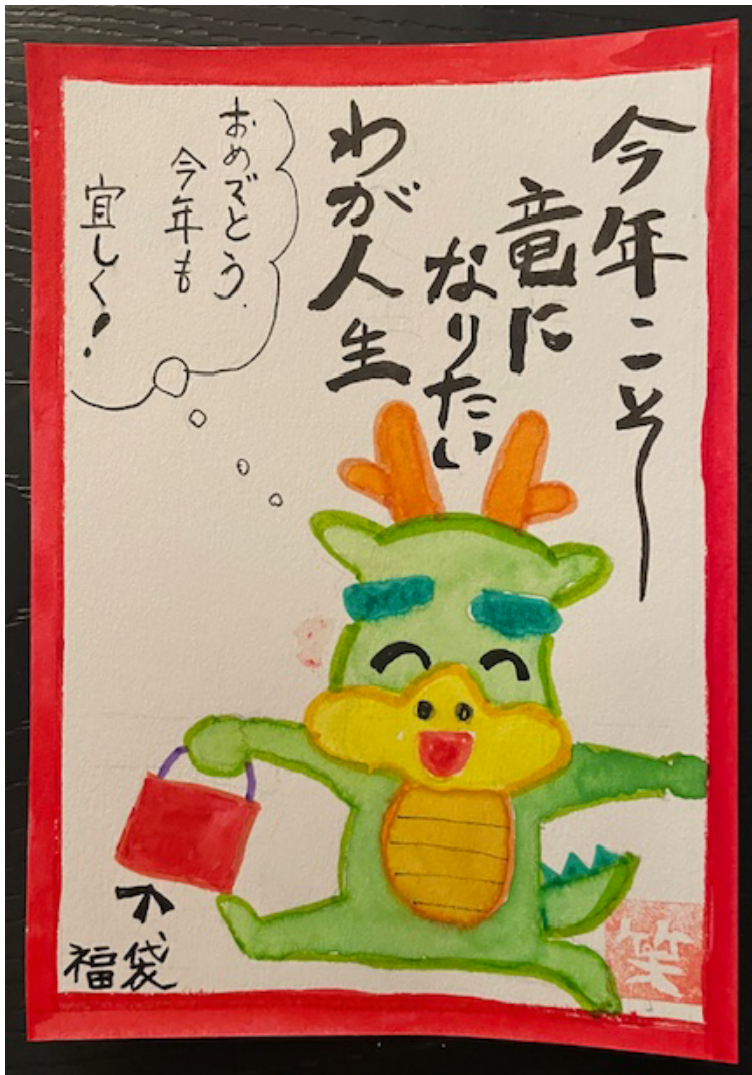 今年こそ
竜に
なりたい
わが人生
おめでとう
今年も
宜しく!
福袋
笑